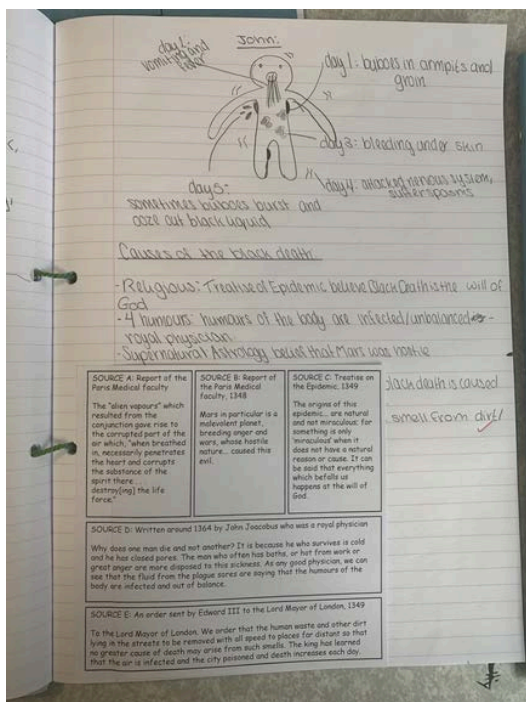 John:
day 2:
vomiting and
fever
day 1: buboes in armpits and
groin
day 3: bleeding under skin
day 4: attacked nervous system,
suffer spasms
day 5:
sometimes buboes burst and
ooze out black liquid
Causes of the black death
- Religious: Treatise of Epidemic believe Black Death is the will of
God
- 4 humours: humours of the body are infected/unbalanced -
royal physician
- Supernatural Astrology belief that Mars was hostile
black death is caused
smell from dirt/
SOURCE A: Report of the
Paris Medical faculty
The "alien vapours" which
resulted from the
conjunction gave rise to
the corrupted part of the
air which, "when breathed
in, necessarily penetrates
the heart and corrupts
the substance of the
spirit there . .
destroy[ing] the life
force."
SOURCE B: Report of
the Paris Medical
faculty, 1348
Mars in particular is a
malevolent planet,
breeding anger and
wars, whose hostile
nature... caused this
evil.
SOURCE C: Treatise on
the Epidemic, 1349
The origins of this
epidemic... are natural
and not miraculous: for
something is only
'miraculous' when it
does not have a natural
reason or cause. It can
be said that everything
which befalls us
happens at the will of
God.
SOURCE D: Written around 1364 by John Joacobus who was a royal physician
Why does one man die and not another? It is because he who survives is cold
and he has closed pores. The man who often has baths, or hot from work or
great anger are more disposed to this sickness. As any good physician, we can
see that the fluid from the plague sores are saying that the humours of the
body are infected and out of balance.
SOURCE E: An order sent by Edward III to the Lord Mayor of London, 1349
To the Lord Mayor of London. We order that the human waste and other dirt
lying in the streets to be removed with all speed to places far distant so that
no greater cause of death may arise from such smells. The king has learned
that the air is infected and the city poisoned and death increases each day.